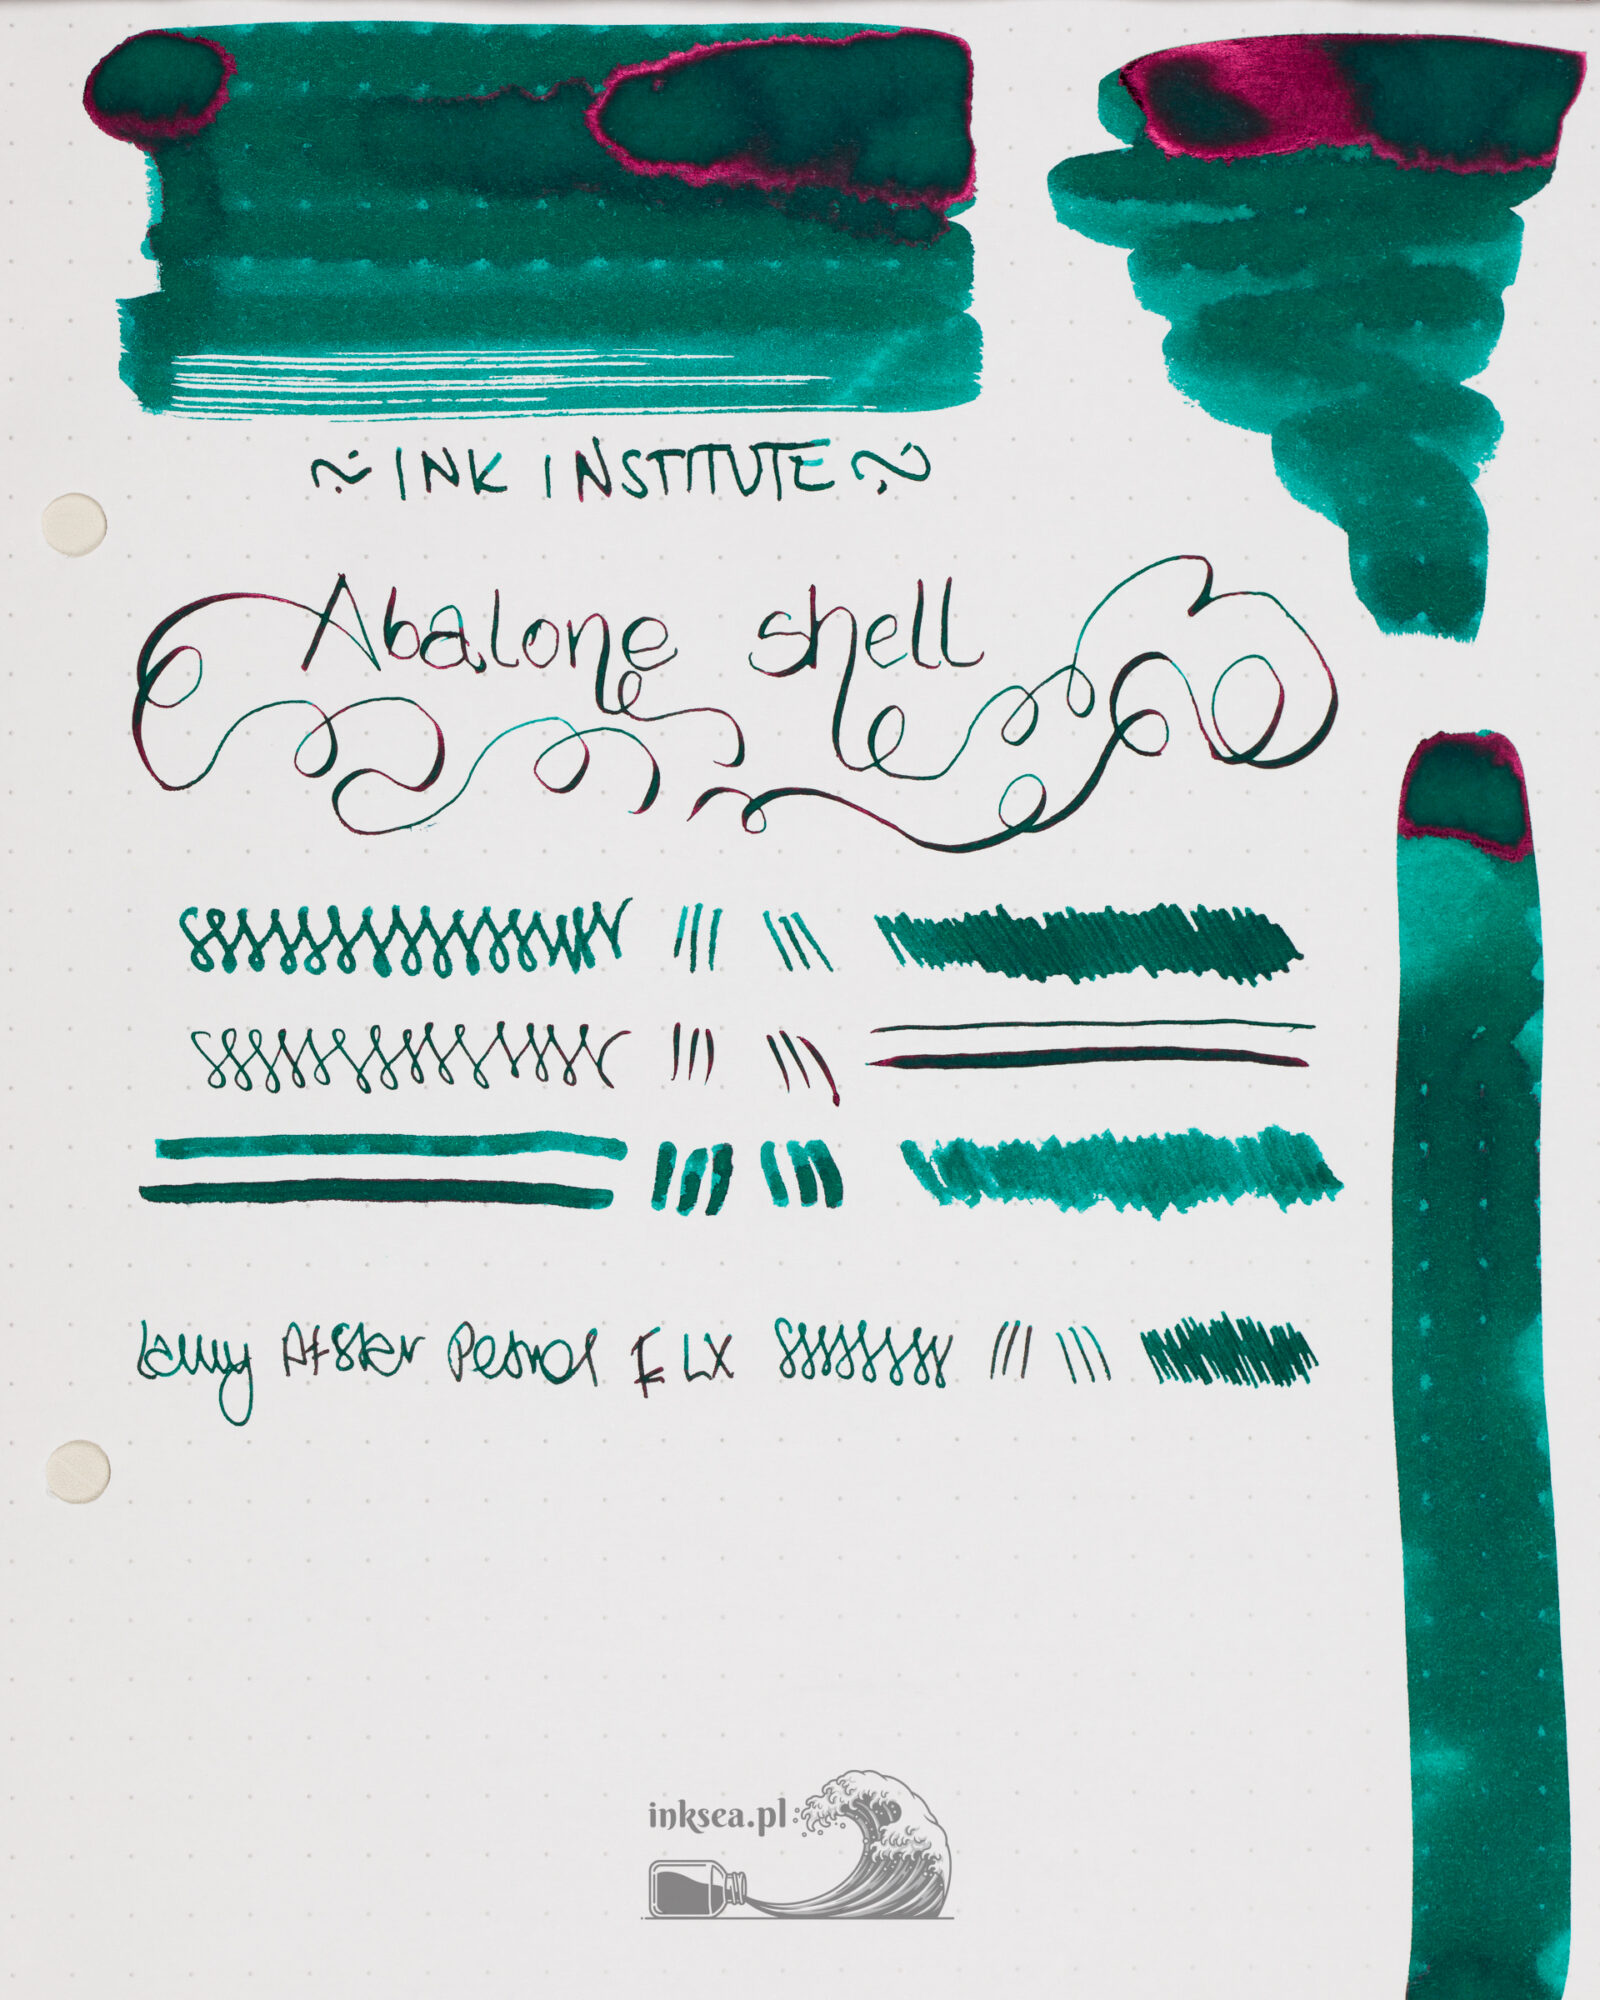 ~ INK INSTITUTE ~
Abalone shell
Lamy Alstar Petrol LX
inksea.pl